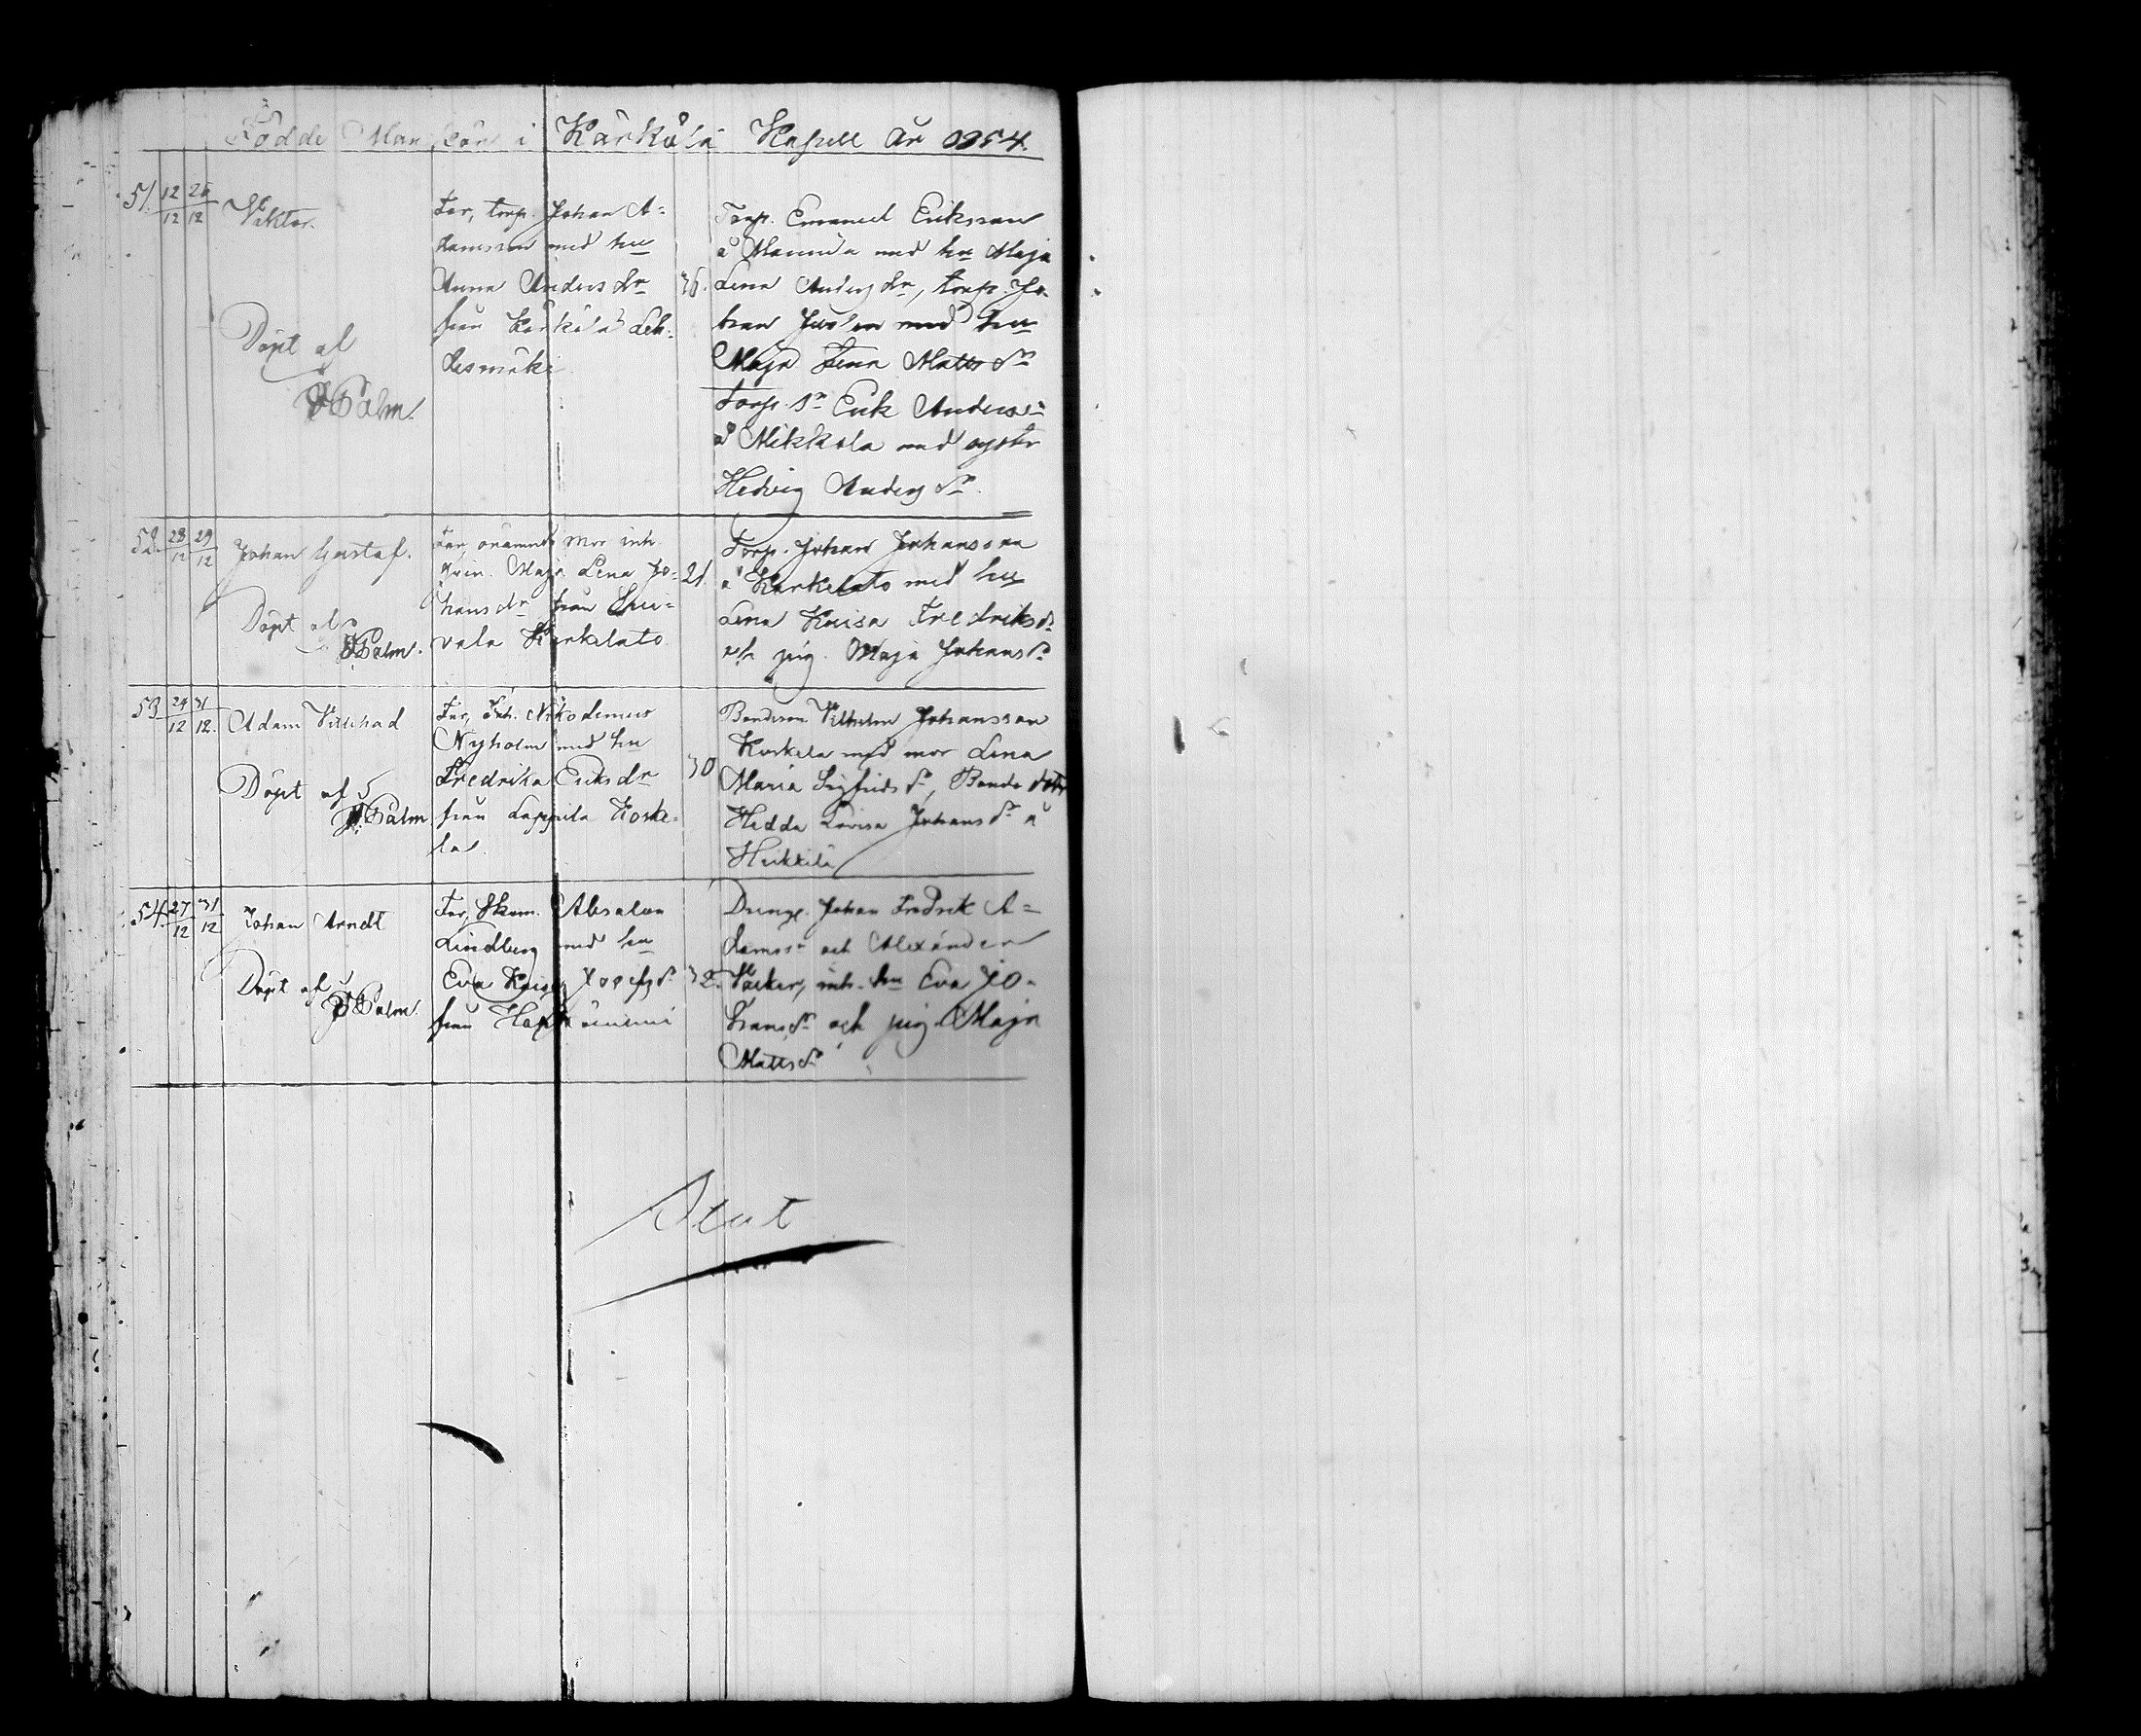 Födde Mankön i Kärkölä Kapell År 1854.
51. 12/12 26/12 Viktor.
Döpt af
J Palm.
Far, torp. Johan A=
damsson med hu
Anna Anders dr
från Kärkölä Leh=
desmäki
36.
Torp. Emanuel Eriksson
å Mannila med hu Maja
Lena Anders dr, torp. Jo-
han med hu
Maja Lena Matts dr
Torp. sn Erik Anderss:n
å Mikkola med syster
Hedvig Anders dr.
52. 28/12 29/12 Johan Gustaf.
Döpt af
J Palm.
Far, onämnd mor inh.
qvin. Maja Lena Jo=
hans dr från
vala Kärkelato
21.
Torp. Johan Johansson
å Kärkelato med hu
Lena Kaisa Fredriks dr
och pig. Maja Johans dr
53. 29/12 31/12. Adam Villehad
Döpt af
J Palm
Far, Inh. Nikodemus
Nyholm med hu
Fredrika Eriks dr
från Lappila Koske=
la.
30
Bondeson Vilhelm Johansson
Koskela med mor Lena
Maria Sigfrids dr, Bonde dotr
Hedda Lovisa Johans dr å
Heikkilä
54. 27/12 31/12 Johan Arndt
Döpt af
J Palm.
Far, Skom. Absalon
Lindberg med hu
Eva Kaisa Josefs dr
från
32.
Dreng. Johan Fredrik A=
damss:n och Alexander
inh. hu Eva Jo-
hans dr och pig. Maja
Matts dr
Slut